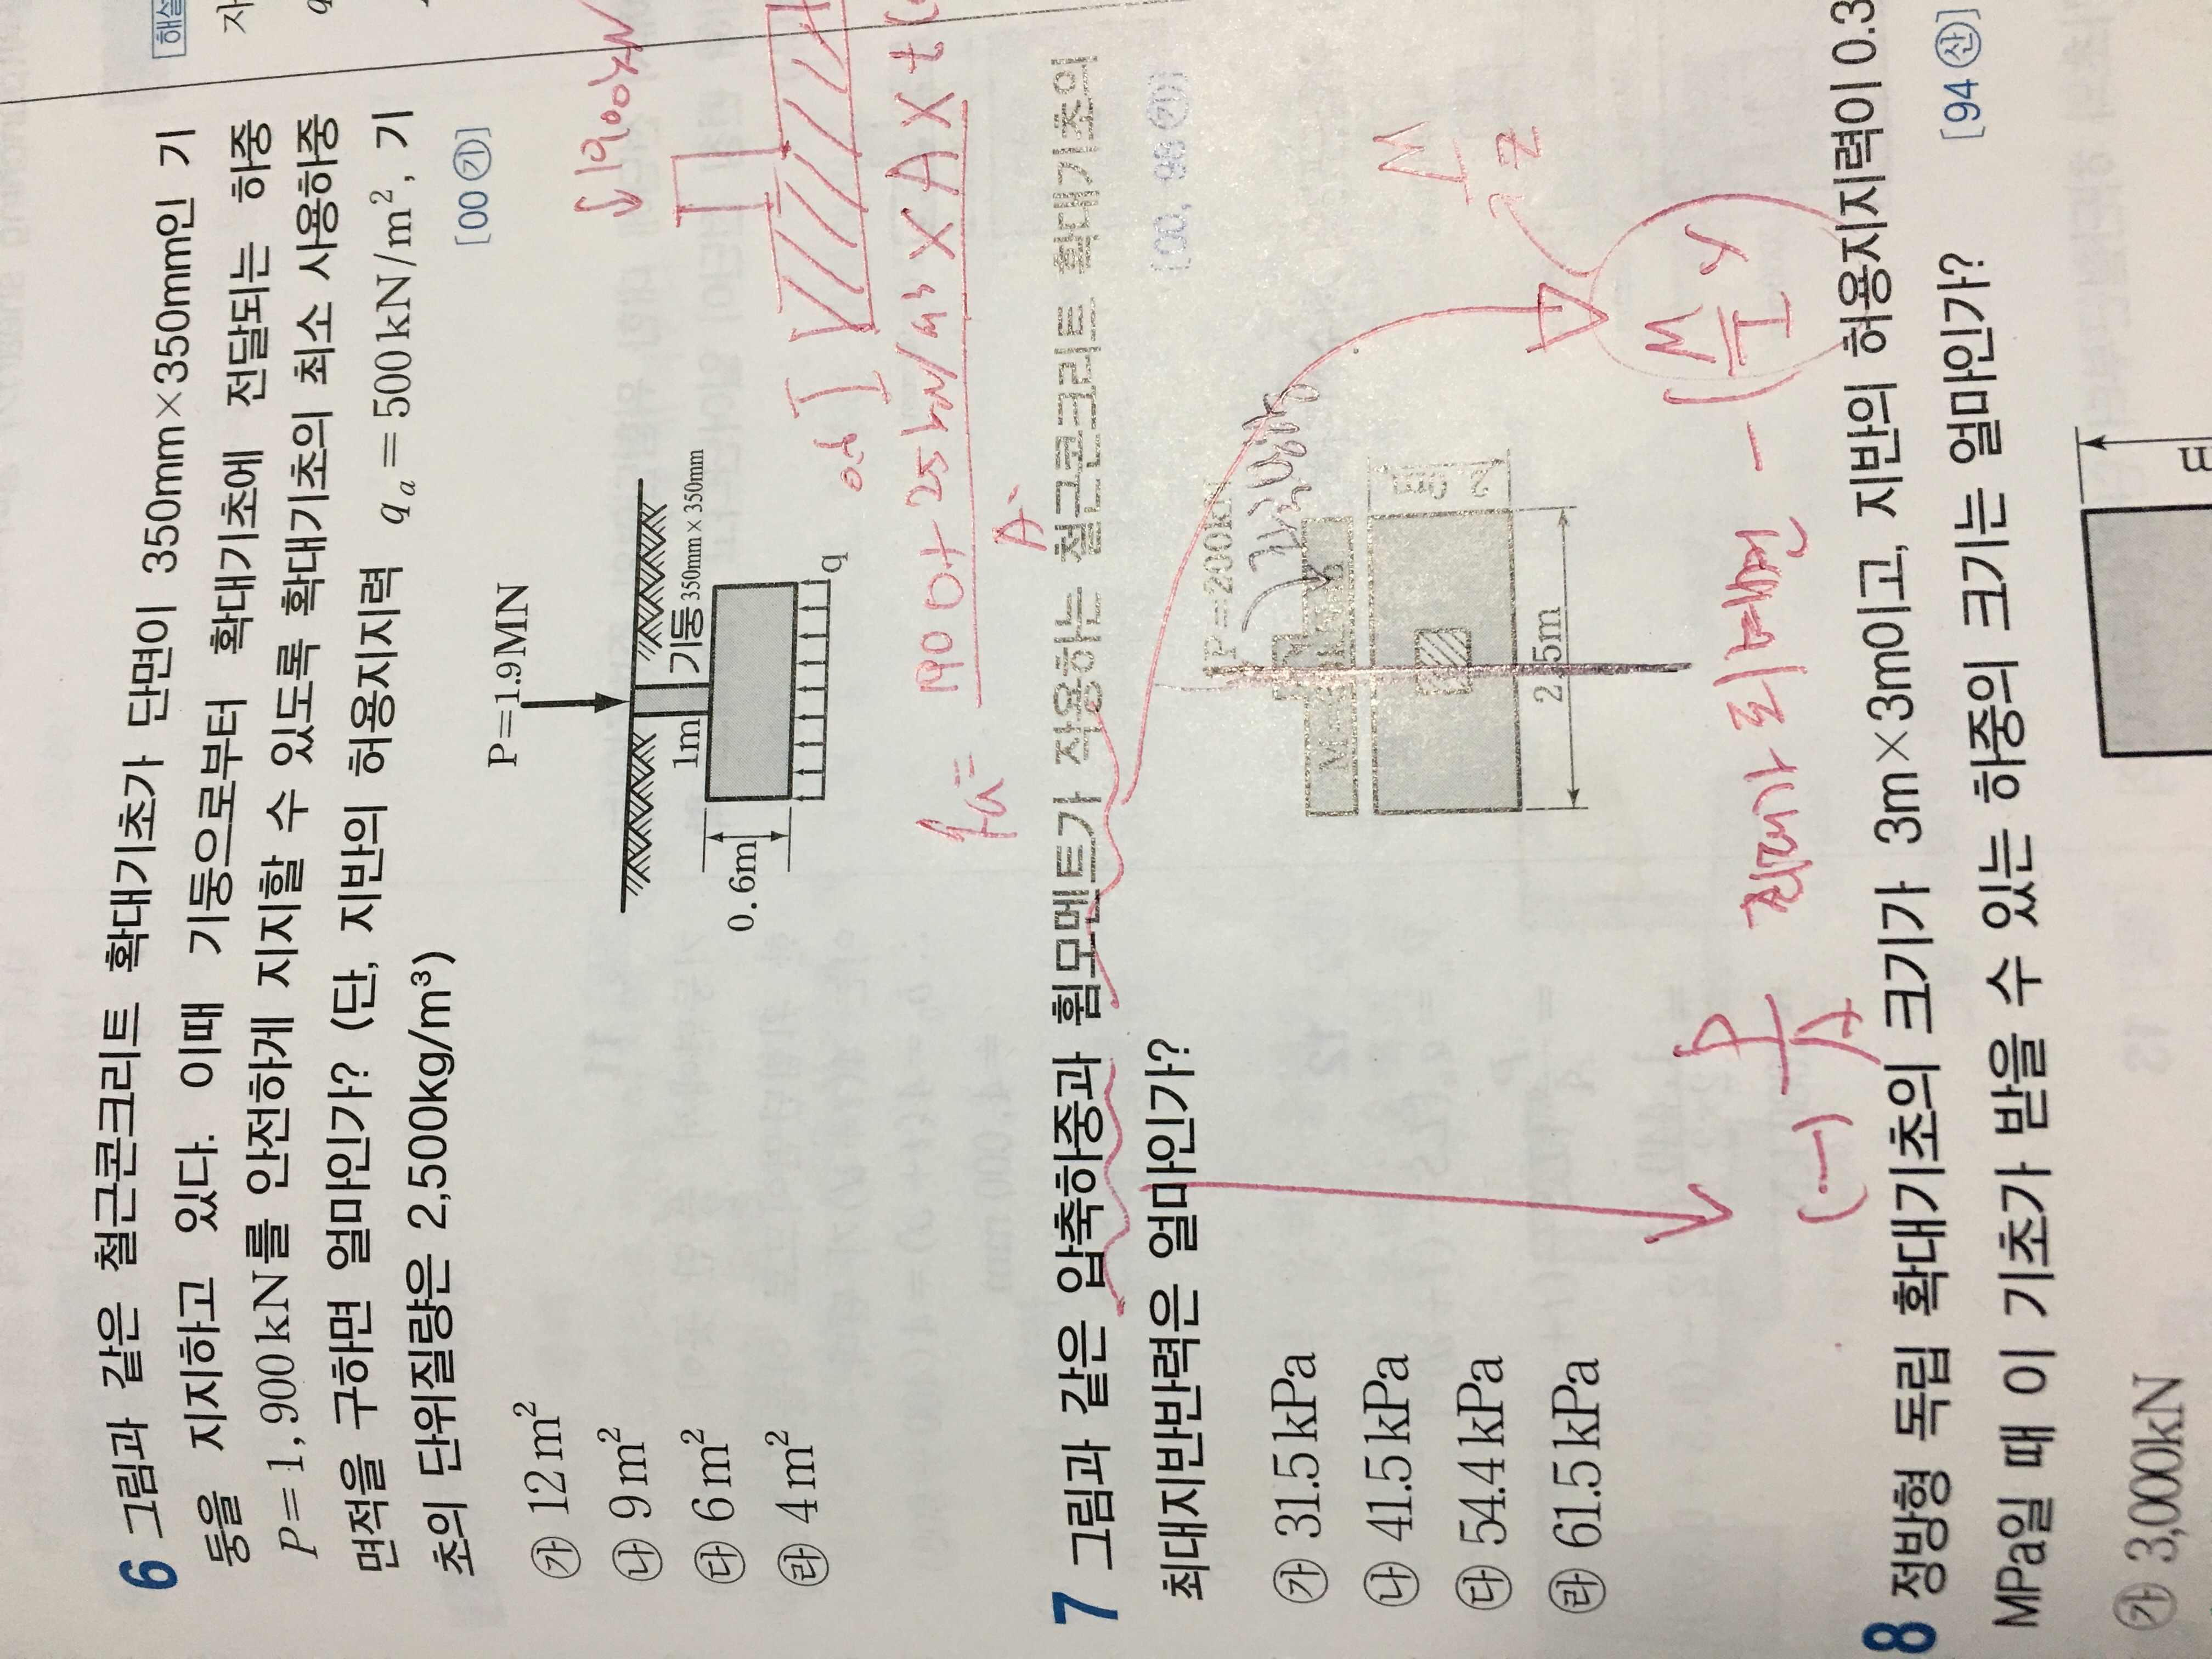 6 그림과 같은 철근콘크리트 확대기초가 단면이 350mm×350mm인 기
둥을 지지하고 있다. 이때 기둥으로부터 확대기초에 전달되는 하중
P=1,900kN를 안전하게 지지할 수 있도록 확대기초의 최소 사용하중
면적을 구하면 얼마인가? (단, 지반의 허용지지력 qa=500kN/m², 기
초의 단위질량은 2,500kg/m³)
[00 ㉮]
㉮ 12m²
㉯ 9m²
㉰ 6m²
㉱ 4m²
P=1.9MN
1m
기둥 350mm×350mm
0.6m
q
↓1900kN
0.6
qa= 1900+25kN/m³×A×t
A
7 그림과 같은 압축하중과 휨모멘트가 작용하는 철근콘크리트 확대기초의
최대지반반력은 얼마인가?
[00, 98 ㉮]
㉮ 31.5kPa
㉯ 41.5kPa
㉰ 54.4kPa
㉱ 61.5kPa
P=200kN
2.5m
M
Z
(-) P/A
최대가 되려면 - (M/I y
8 정방형 독립 확대기초의 크기가 3m×3m이고, 지반의 허용지지력이 0.3
MPa일 때 이 기초가 받을 수 있는 하중의 크기는 얼마인가?
[94 ㉾]
㉮ 3,000kN
해설
자